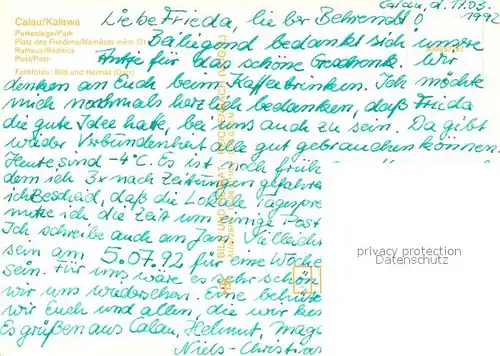 Calau, d. 11.03.
1992
Liebe Frieda, lieber Behrendt O
Calau/Kalawa
Parkanlage/Park
Platz des Friedens/Naměsto měra (2)
Rathaus/Radnica
Post/Post
Farbfotos: Bild und Heimat
Beiliegend bedankt sich unsere
Antje für das schöne Geschenk. Wir
denken an Euch beim Kaffeetrinken. Ich möchte
mich nochmals herzlich bedanken, daß Frieda
die gute Idee hatte, bei uns auch zu sein. Da gibt
wieder Verbundenheit alle gut gebrauchen können.
Heute sind -4°C. Es ist noch früh
dem ich 3x nach Zeitungen gefahren
ich Bescheid, daß die Lokale Tagespre
nutze ich die Zeit um einige Post
Ich schreibe auch an Jan. Vielleich
sein am 5.07.92 für eine Woche
sein. Für uns wäre es sehr schön
wir uns wiedersehen. Eine behüte
wir Euch und allen, die wir
Es grüßen aus Calau, Helmut, Mag
Niels-Christian
privacy protection
Datenschutz